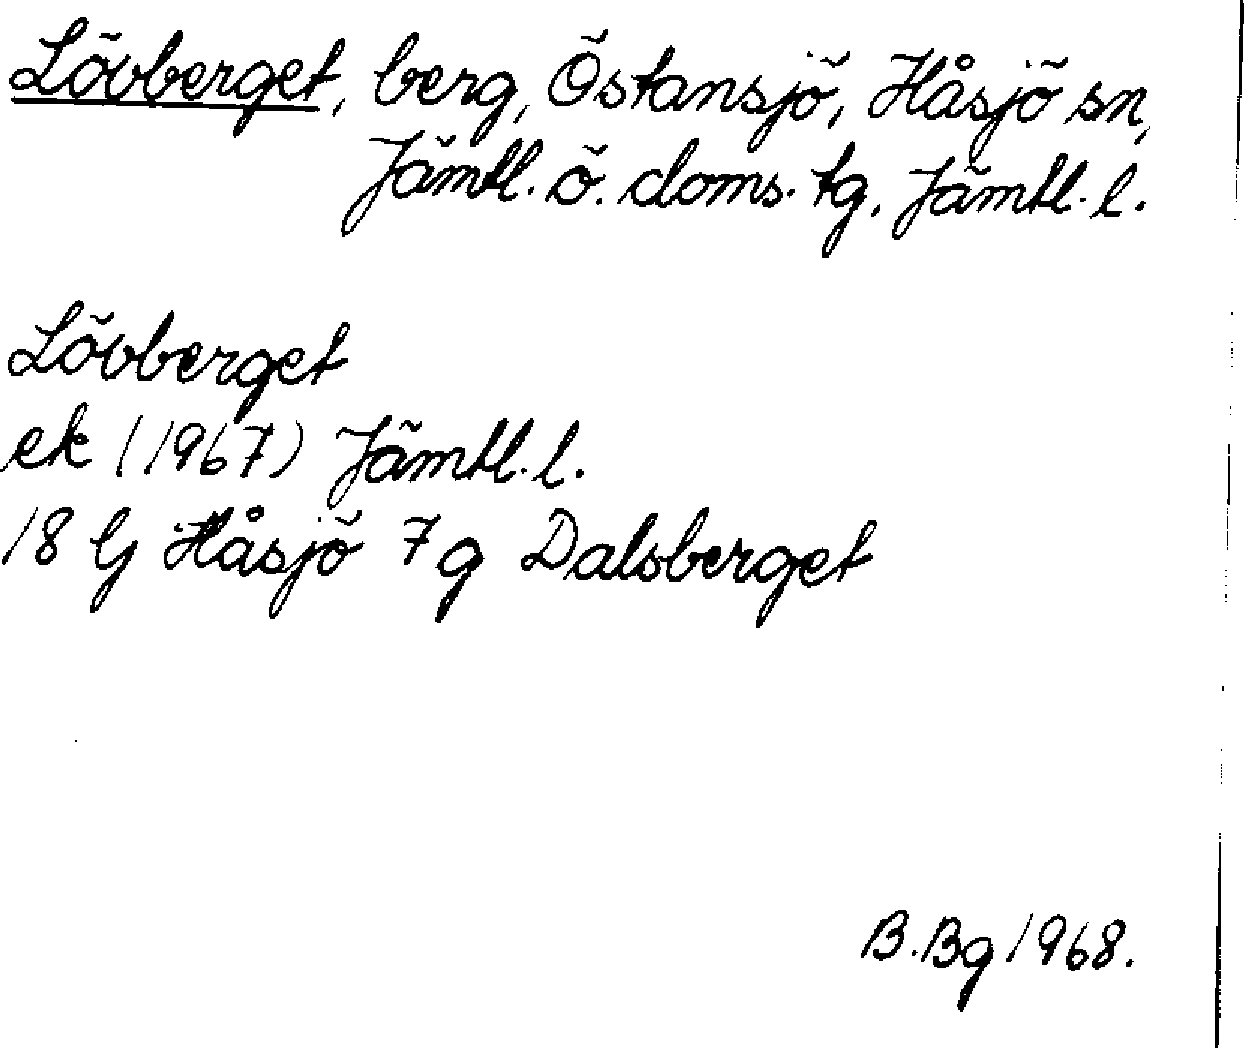 Lövberget, berg, Östansjö, Håsjö sn,
Jämtl. ö. doms. tg, Jämtl. l.
Lövberget
ek (1967) Jämtl. l.
18 G Håsjö 7 g Dalsberget
B. Bg 1968.